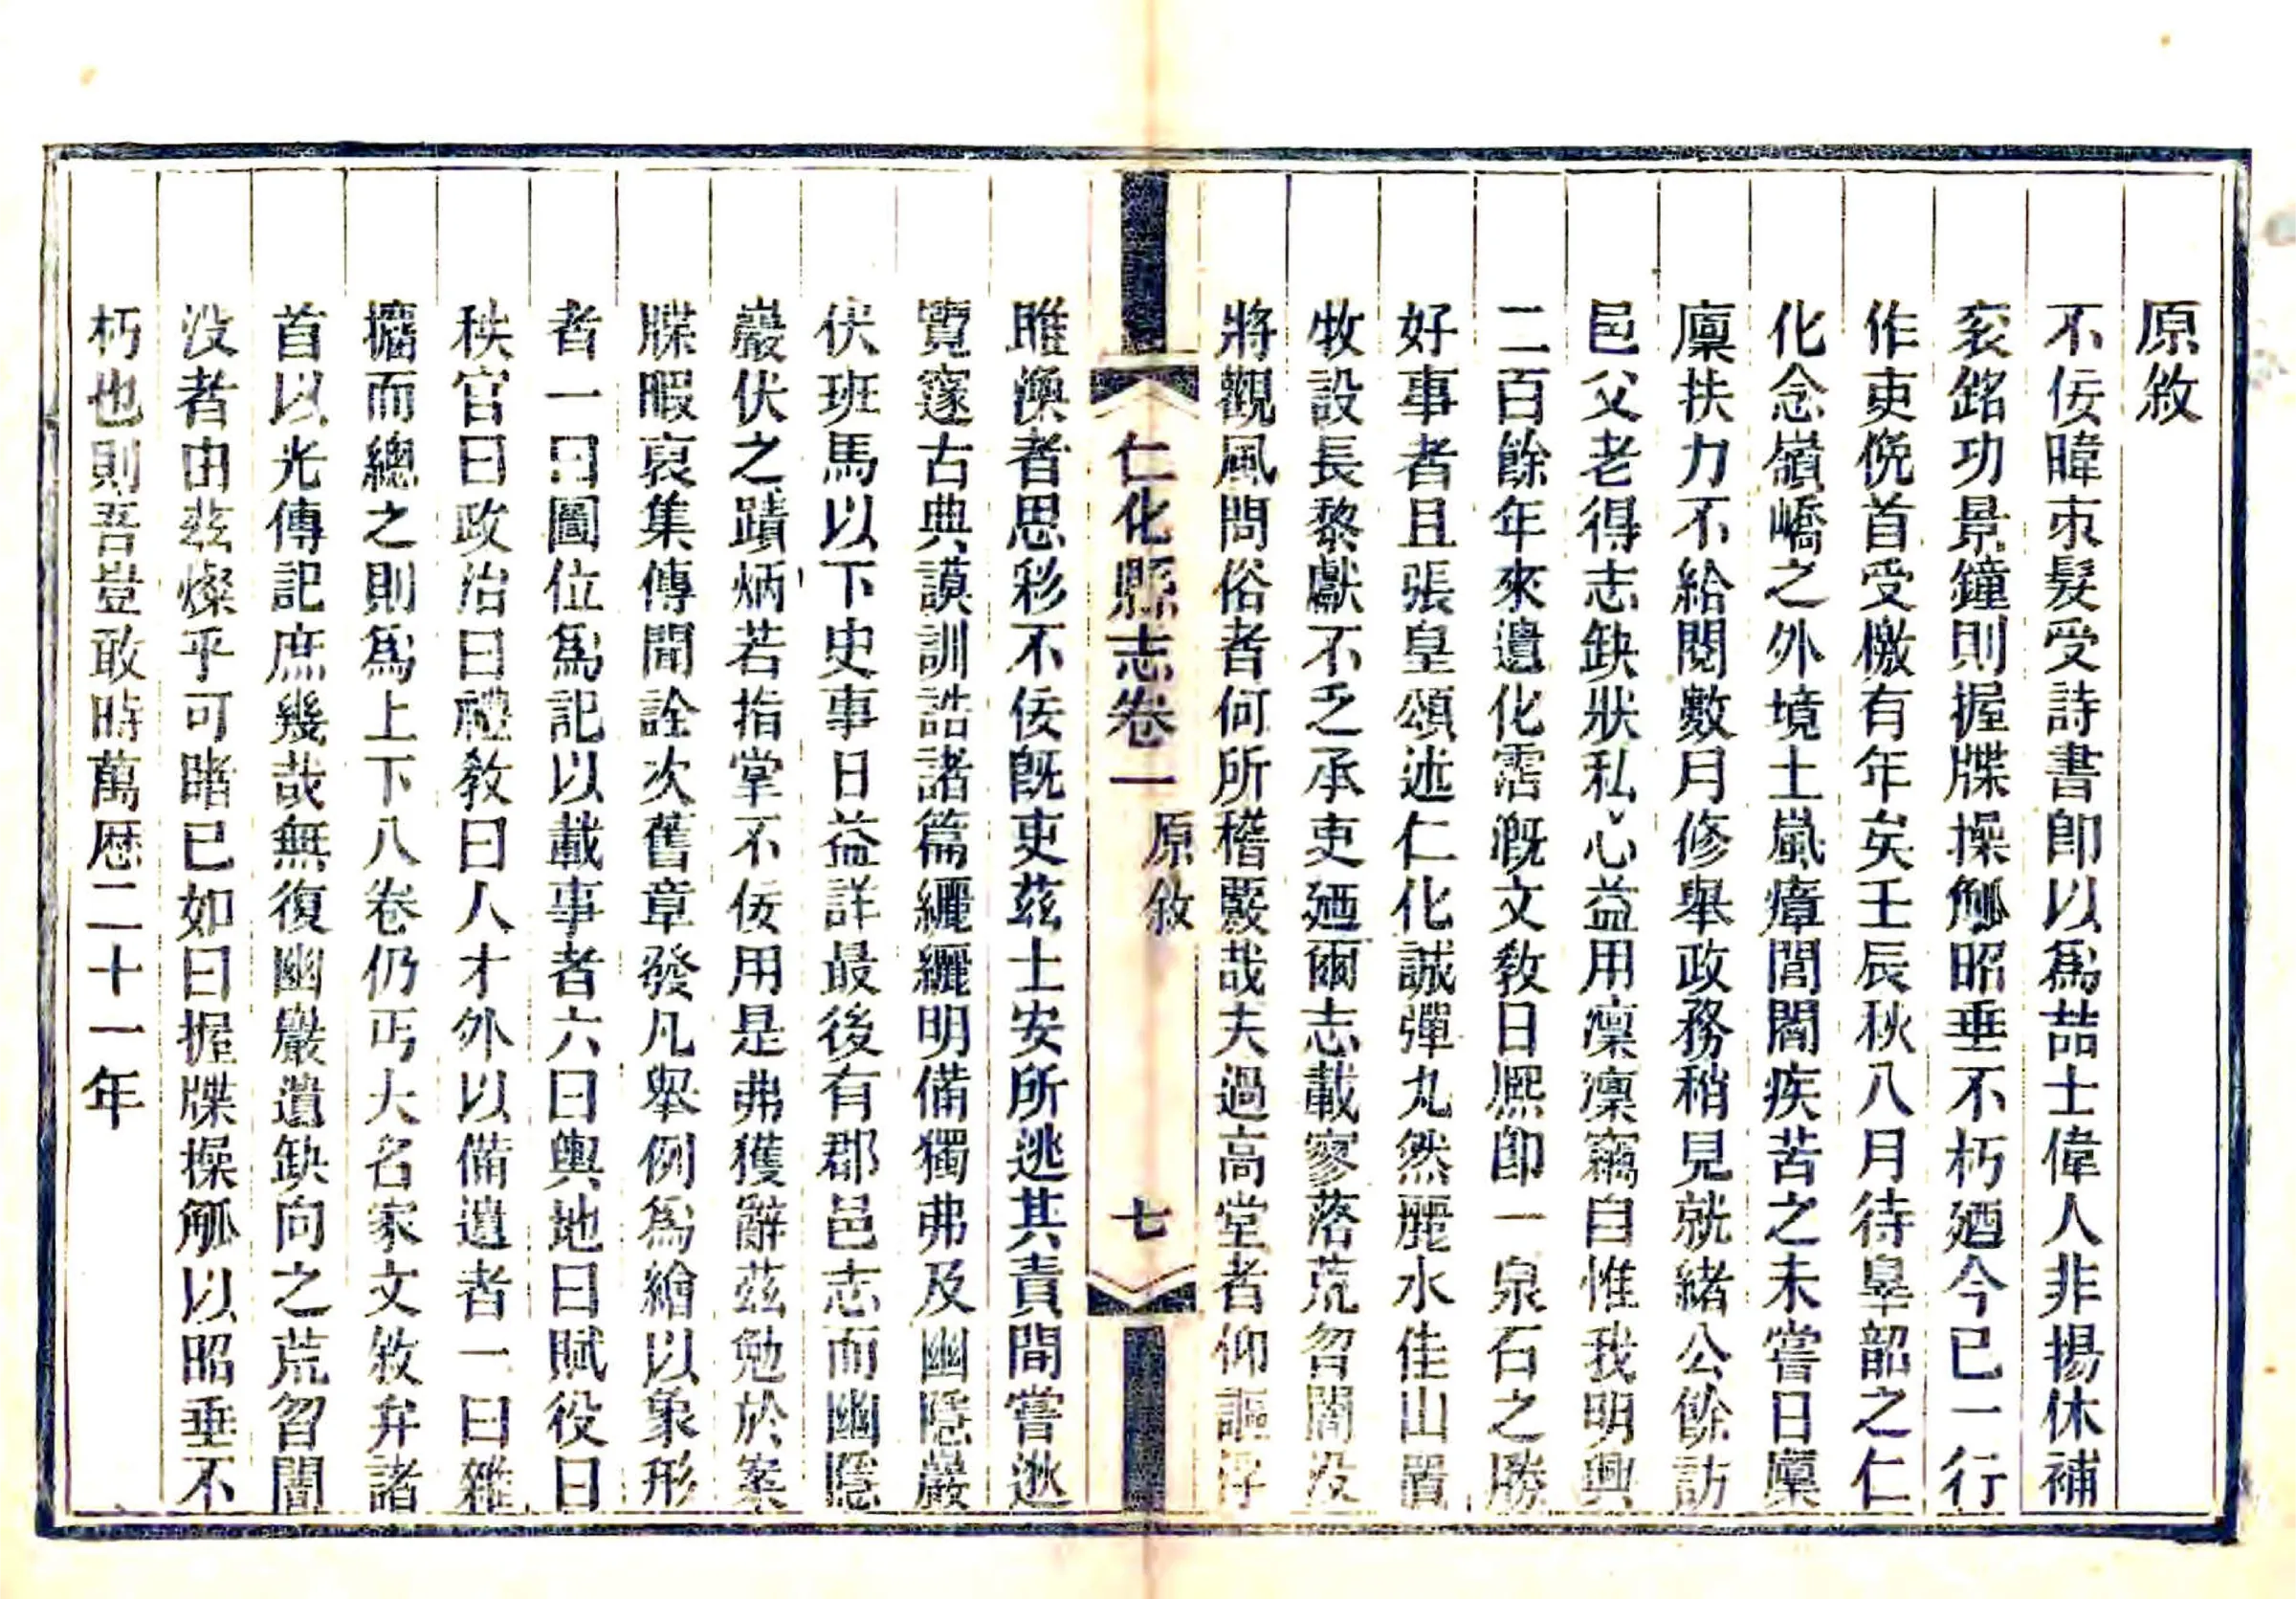 原敘
不佞暐朿髮受詩書即以爲喆士偉人非揚休補
衮銘功景鐘則握牒操觚昭垂不朽廼今已一行
作吏俛首受檄有年矣壬辰秋八月待辠韶之仁
化念嶺嶠之外境土嵐瘴閭閻疾苦之未嘗日廩
廩扶力不給閱數月修舉政務稍見就緒公餘訪
邑父老得志缺狀私心益用凜凜竊自惟我明興
二百餘年來遺化霑漑文敎日熈即一泉石之勝
好事者且張皇頌述仁化誠彈丸然麗水佳山置
牧設長黎獻不乏承吏廼爾志載寥落荒曶闇没
將觀風問俗者何所稽覈哉夫過高堂者仰謳浮
仁化縣志卷一 原敘 七
雎渙者思彩不佞旣吏茲土安所逃其責間嘗逖
覽窾古典謨訓誥諸篇纚纚明備獨弗及幽隱巖
伏班馬以下史事日益詳最後有郡邑志而幽隱
巖伏之蹟炳若指掌不佞用是弗獲辭茲勉於案
牒暇裒集傳聞詮次舊章發凡舉例爲繪以象形
者一曰圖位爲記以載事者六曰輿地曰賦役曰
秩官曰政治曰禮敎曰人才外以備遺者一曰雜
攟而總之則爲上下八卷仍丐大名家文敘弁諸
首以光傳記庶幾哉無復幽巖遺缺向之荒曶闇
没者由茲燦乎可睹已如曰握牒操觚以昭垂不
朽也則吾豈敢時萬厯二十一年